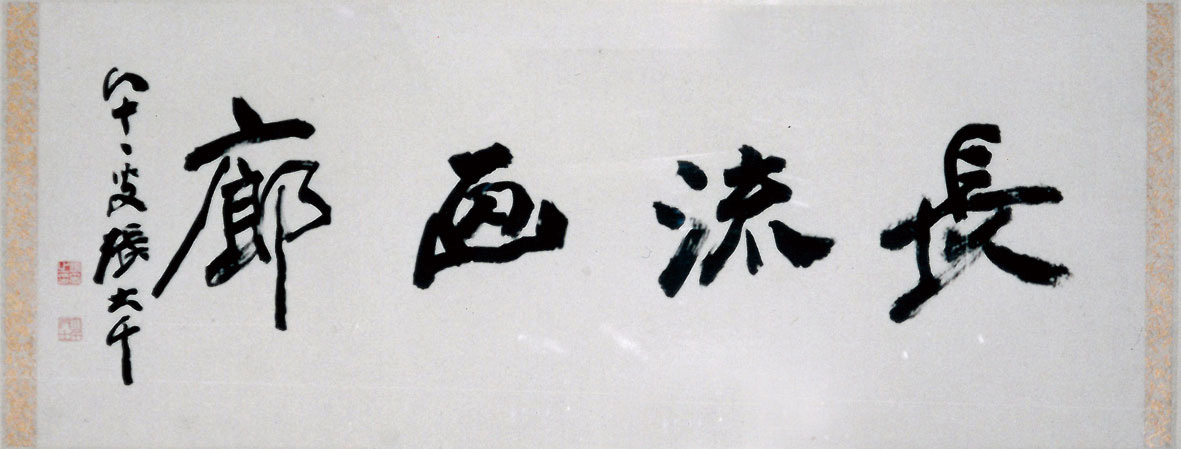 長流画廊
八十二叟張大千